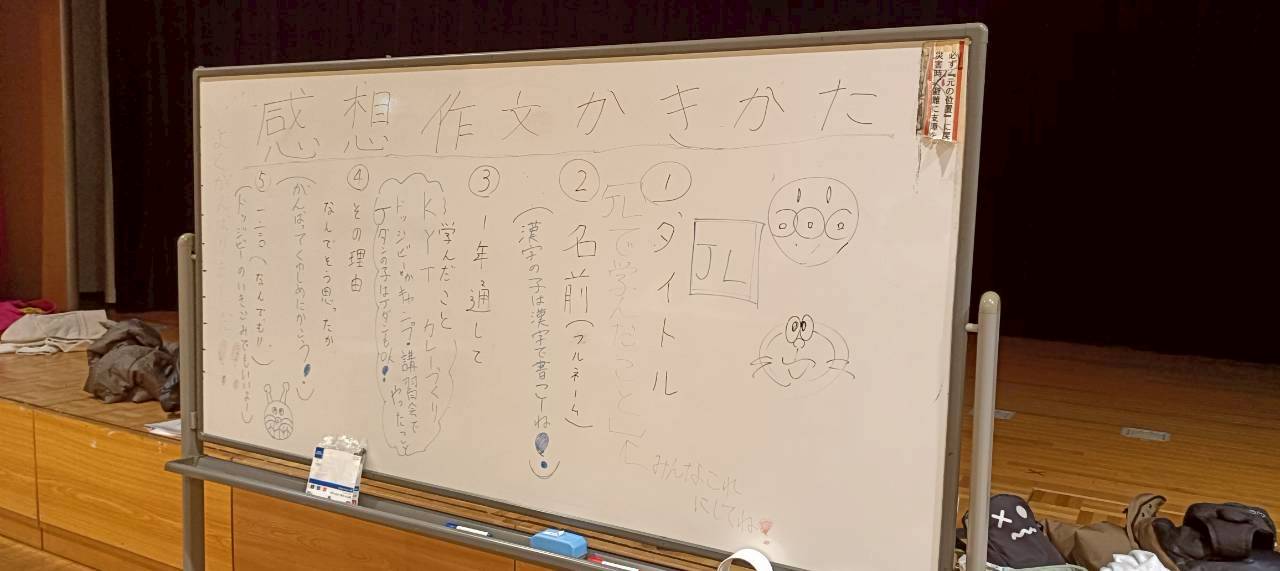 感想作文かきかた
JL
①タイトル
「JLで学んだこと」
みんなこれ
にしてね!
②名前(フルネーム)
(漢字の子は漢字で書こーね!)
③1年通して
学んだこと
KYT カレーづくり
ドッジビー キャンプ・講習会で
やったこと
Jダンの子はJダンもOK!
④その理由
なんでそう思ったか
(がんばってくわしめにかこう!)
⑤一言(なんでも!!)
(ドッジビーのいきごみでもいいよー)
必ず「元の位置」に戻
災害時、避難に支障を